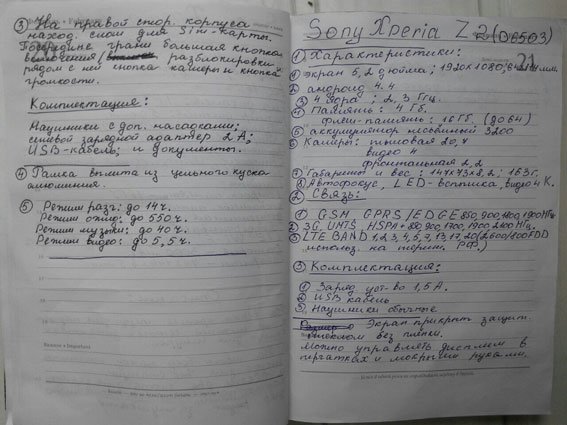 ③ На правой стор. корпуса
наход. слот для Sim-карты.
Посередине грани большая кнопка
включения/ разблокировки
рядом с ней кнопка камеры и кнопка
громкости.
Комплектация:
Наушники с доп. насадками;
сетевой зарядной адаптер 2А;
USB-кабель; и документы.
④ Рамка вылита из цельного куска
алюминия.
⑤ Режим разг: до 19 ч.
Режим ожид: до 550 ч.
Режим музыки: до 40 ч.
Режим видео: до 5,5 ч.
Sony Xperia Z2 (D6503)
21
① Характеристики:
① экран 5,2 дюйма; 1920×1080;
② андроид 4.4
③ 4 ядра; 2,3 Ггц.
④ Память: 4 Гб.
флеш-память: 16 Гб (до 64)
⑤ аккумулятор несъёмный 3200
⑥ Камеры: тыловая 20,7
видео 4
фронтальная 2,2
⑦ Габариты и вес: 147×73×8,2; 163 г.
⑧ Автофокус, LED-вспышка, видео 4К.
② Связь:
① GSM GPRS/EDGE 850, 900, 1800, 1900 МГц
② 3G, UMTS, HSPA+ 850, 900, 1700, 1900, 2100 МГц.
③ LTE BAND 1, 2, 3, 4, 5, 7, 8, 13, 17, 20 (2600/800 FDD
использ. на террит. РФ.)
③ Комплектация:
① Заряд. уст-во 1,5 А.
② USB кабель
③ Наушники обычные
Экран прикрыт защит.
стеклом без плёнки.
Можно управлять дисплеем в
перчатках и мокрыми руками.